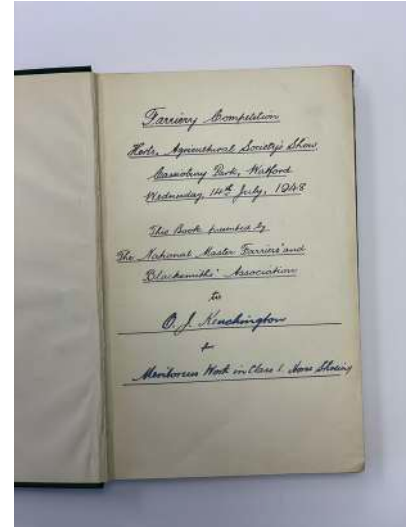 Farriery Competition
Herts. Agricultural Society's Show,
Cassiobury Park, Watford.
Wednesday, 14th July, 1948
This Book presented by
The National Master Farriers' and
Blacksmiths' Association
to
O. J. Kenchington
for
Meritorious Work in Class 1. Horse Shoeing